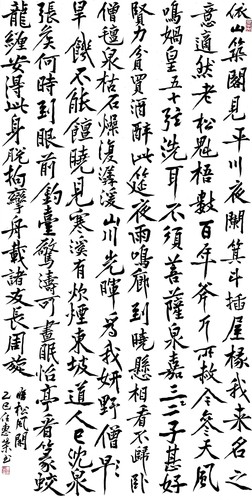 依山築閣見平川夜闌箕斗插屋椽我来名之
意適然老松魁梧數百年斧斤所赦今參天風
鳴媧皇五十弦洗耳不須菩薩泉嘉三二子甚好
賢力貧買酒醉此筵夜雨鳴廊到曉懸相看不歸卧
僧氈泉枯石燥復潺湲山川光暉為我妍野僧旱
旱饑不能饘曉見寒溪有炊煙東坡道人已沈泉
張侯何時到眼前釣臺驚濤可晝眠怡亭看篆蛟
龍纏安得此身脫拘攣舟載諸友長周旋
松風閣
乙巳書